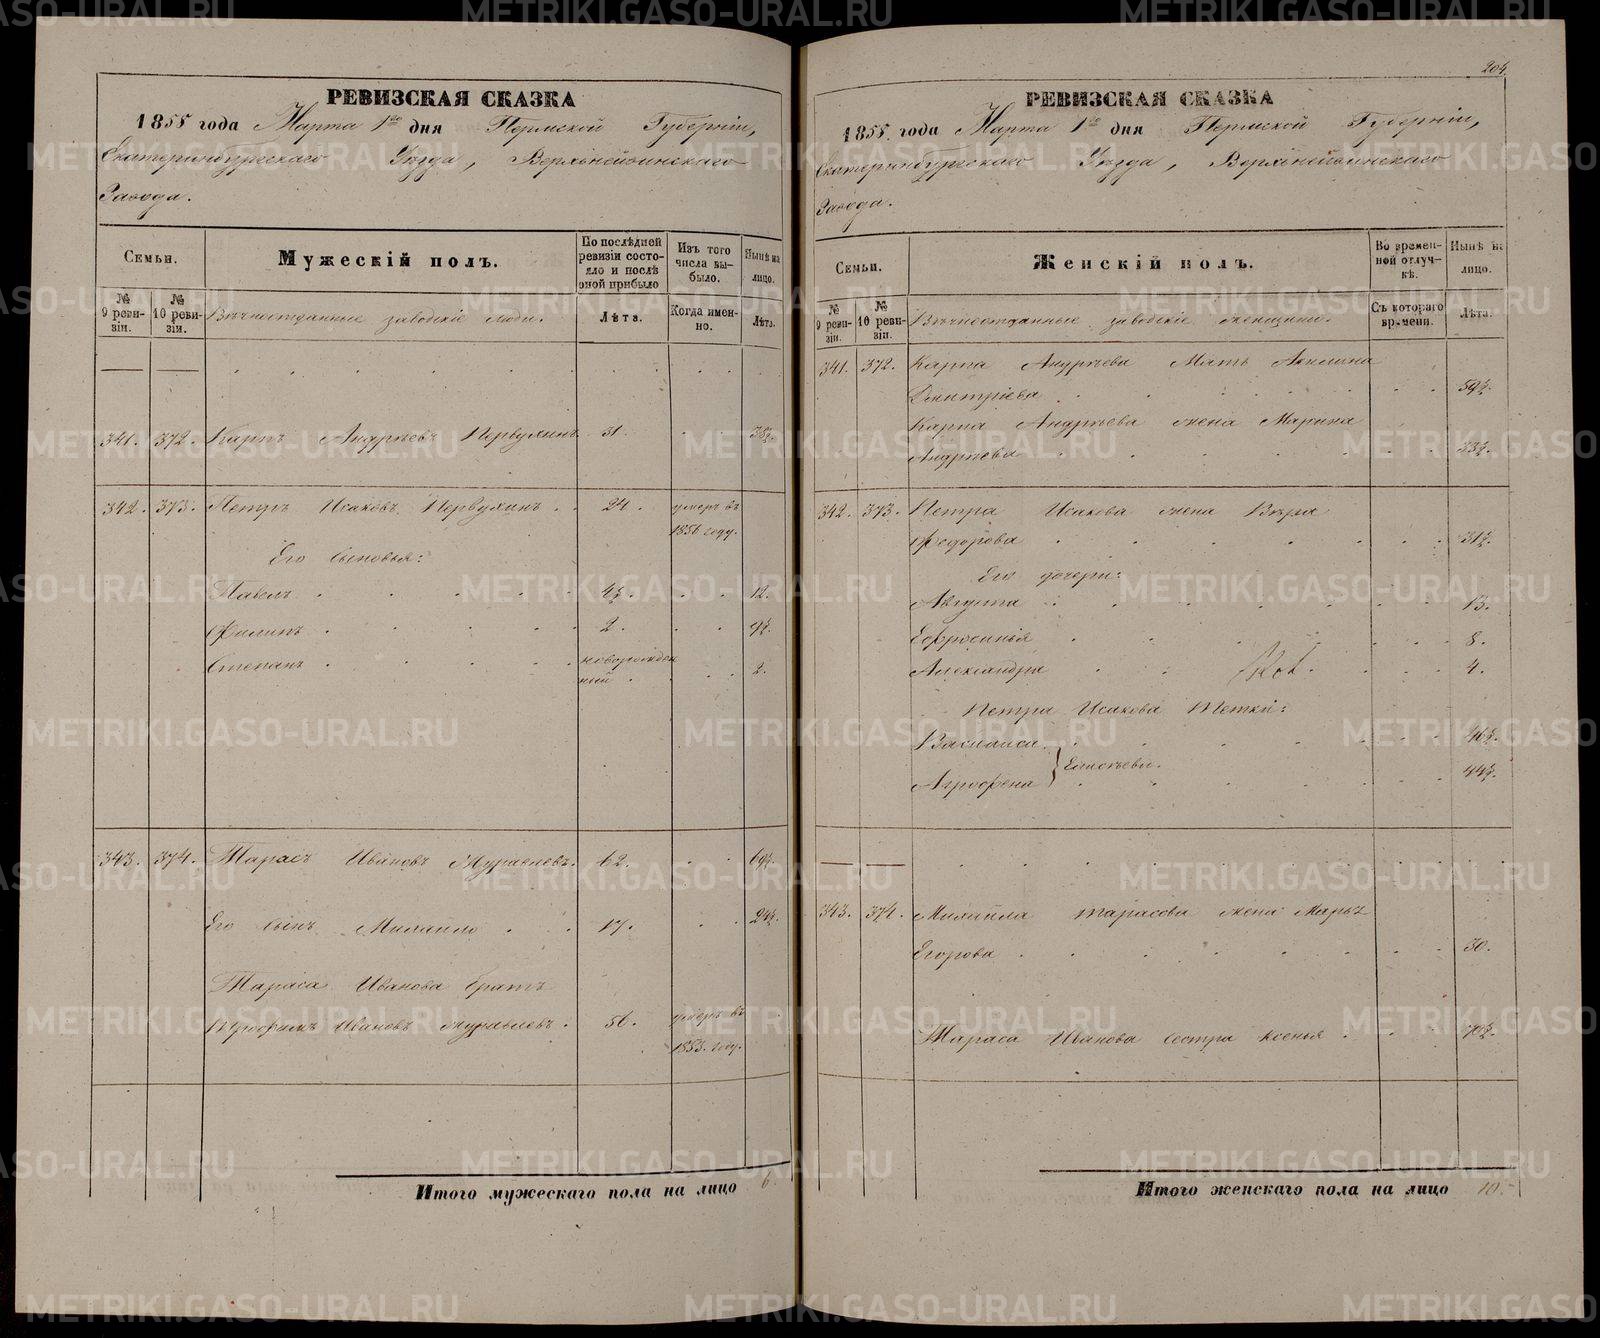 РЕВИЗСКАЯ СКАЗКА
1855 года Марта 1го дня Пермской Губерніи,
Екатеринбургскаго Уѣзда, Верхнейвинскаго
Завода.
Семьи.
Мужескій полъ.
По послѣдней ревизіи состояло и послѣ оной прибыло
Изъ того числа выбыло.
Нынѣ на лицо.
№ 9 ревизіи.
№ 10 ревизіи.
Вѣчноотданные заводскіе люди.
Лѣта.
Когда именно.
Лѣта.
341. 372. Карпъ Андреевъ Первухинъ 31. 38½.
342. 373. Петръ Исаковъ Первухинъ 24. умеръ въ
1856 году.
Его Сыновья:
Павелъ 4½. 12.
Филипъ 2. 9½.
Степанъ новорожден
ный 2.
343. 374. Тарасъ Ивановъ Журавлевъ. 62. 69½.
Его Сынъ Михайло 17. 24½.
Тараса Иванова братъ
Трофимъ Ивановъ Журавлевъ. 56. умеръ въ
1853. году.
Итого мужескаго пола на лицо 6.
204.
РЕВИЗСКАЯ СКАЗКА
1855. года Марта 1го дня Пермской Губерніи,
Екатеринбургскаго Уѣзда, Верхнейвинскаго
Завода.
Семьи.
Женскій полъ.
Во временной отлучкѣ.
Нынѣ на лицо.
№ 9 ревизіи.
№ 10 ревизіи.
Вѣчноотданные заводскіе женщины.
Съ котораго времени.
Лѣта.
341. 372. Карпа Андреева Мать Акилина
Дмитріева 59½.
Карпа Андреева жена Марина
Андреева 33½.
342. 373. Петра Исакова жена Вѣра
Федорова 31½.
Его дочери:
Августа 13.
Ефросинья 8.
Александра 4.
Петра Исакова Тетки:
Василиса 46½.
Агрофена 44½.
343. 374. Михайла Тарасова жена Марья
Егорова 30.
Тараса Иванова сестра Ксенья 70½.
Итого женскаго пола на лицо 10.
METRIKI.GASO-URAL.RU